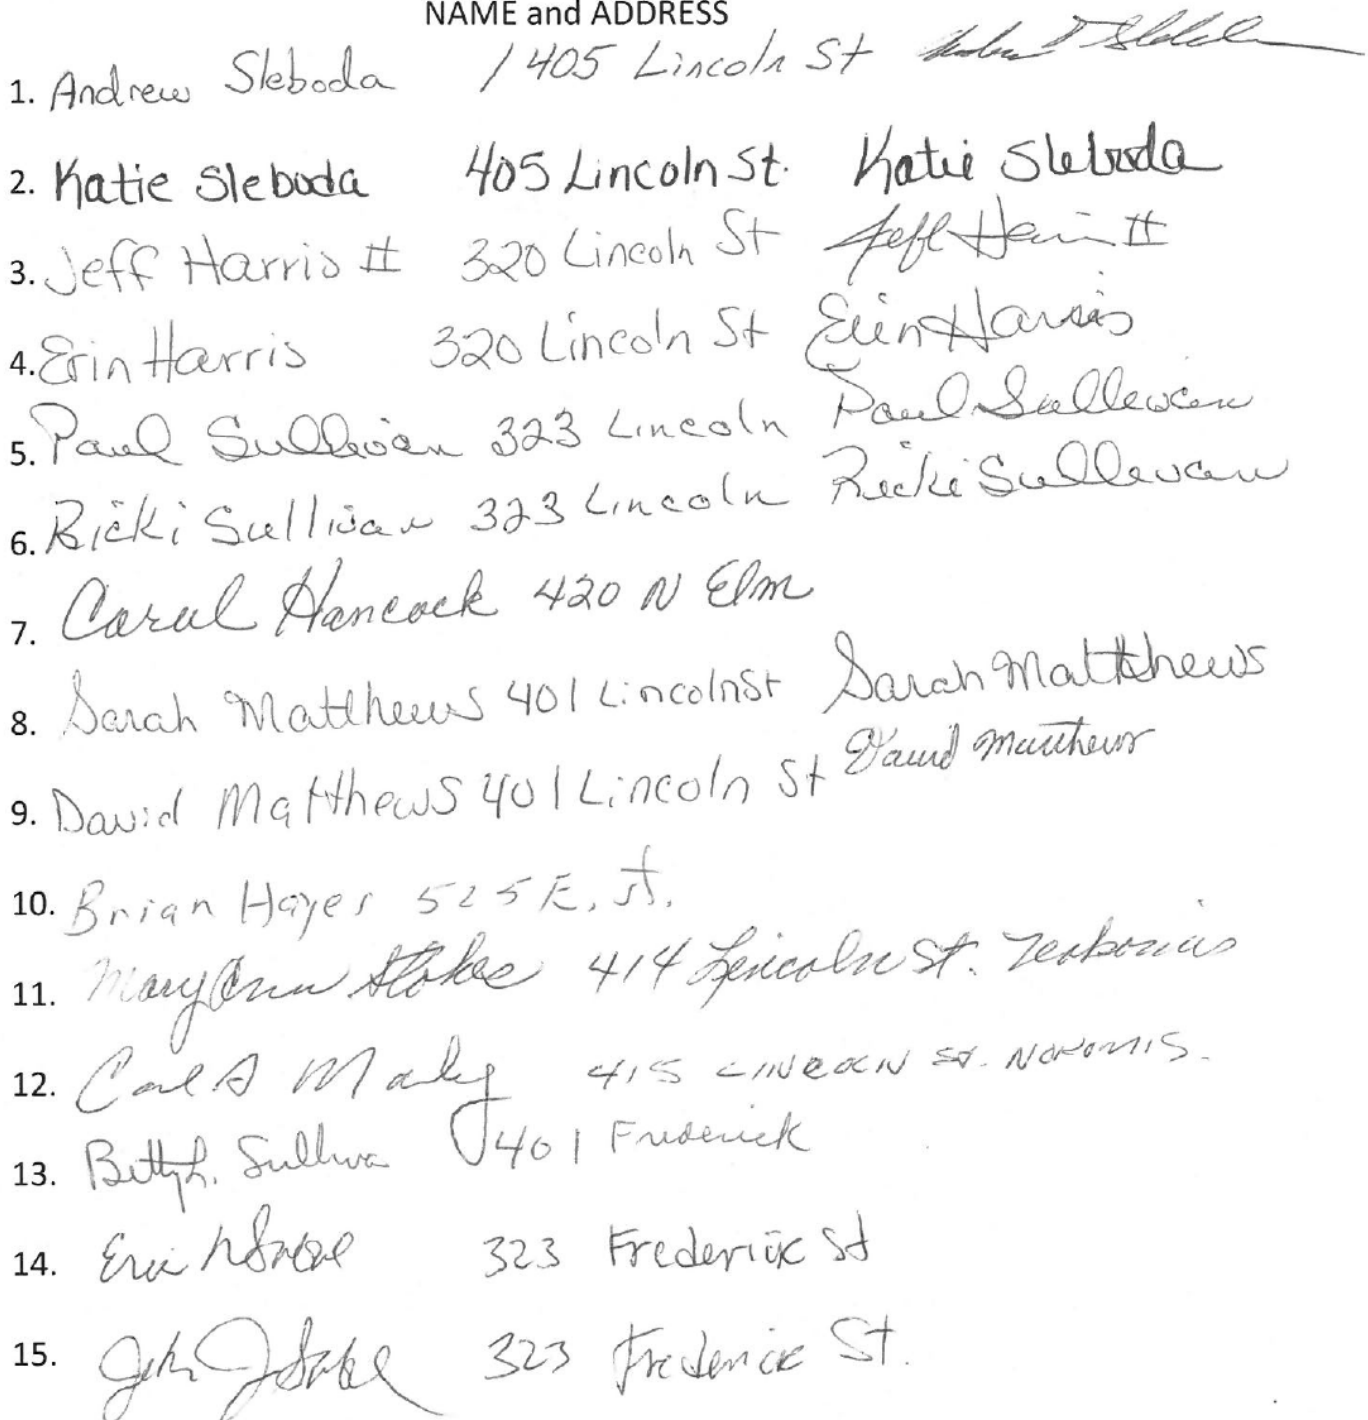 NAME and ADDRESS
1. Andrew Sleboda / 405 Lincoln St
2. Katie Sleboda 405 Lincoln St. Katie Sleboda
3. Jeff Harris II 320 Lincoln St Jeff Harris II
4. Erin Harris 320 Lincoln St Erin Harris
5. Paul Sullivan 323 Lincoln Paul Sullivan
6. Ricki Sullivan 323 Lincoln Ricki Sullivan
7. Carol Hancock 420 N Elm
8. Sarah Matthews 401 Lincoln St Sarah Matthews
9. David Matthews 401 Lincoln St David Matthews
10. Brian Hayes 525 E. St.
11. Mary Ann Stokes 414 Lincoln St.
12. Carl 415 LINCOLN ST. NOKOMIS.
13. Betty L. Sullivan 401 Frederick
14. Eric 323 Frederick St
15. John J 323 Frederick St.